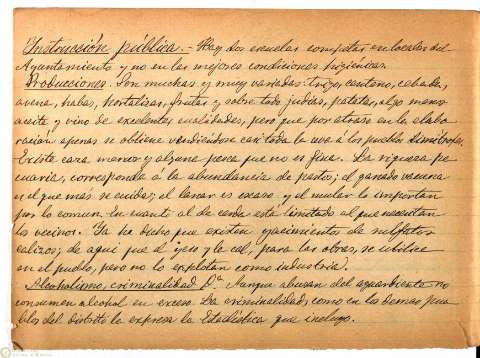 Instrucción pública.- Hay dos escuelas completas en locales del
Ayuntamiento y no en las mejores condiciones higiénicas.
Producciones. Son muchas y muy variadas: trigo, centeno, cebada,
avena, habas, hortalizas, frutas y sobre todo judías, patatas, algo menos
aceite y vino de excelentes cualidades, pero que por atraso en la elabo
ración apenas se obtiene vendiéndose casi toda la uva á los pueblos limítrofes.
Existe caza menor y alguna pesca que no es fina. La riqueza pe
cuaria, corresponde á la abundancia de pastos; el ganado vacuno
es el que más se cuida; el lanar es escaso y el mular lo importan
por lo comun. En cuanto al de cerda está limitado al que necesitan
los vecinos. Ya he dicho que existen yacimientos de sulfatos
calizos; de aquí que el yeso y la cal, para las obras, se utilice
en el pueblo, pero no lo explotan como industria.
Alcoholismo, criminalidad, Dª. Aunque abusan del aguardiente no
consumen alcohol en exceso. La criminalidad, como en los demas pue
blos del distrito la expresa la Estadística que incluyo.